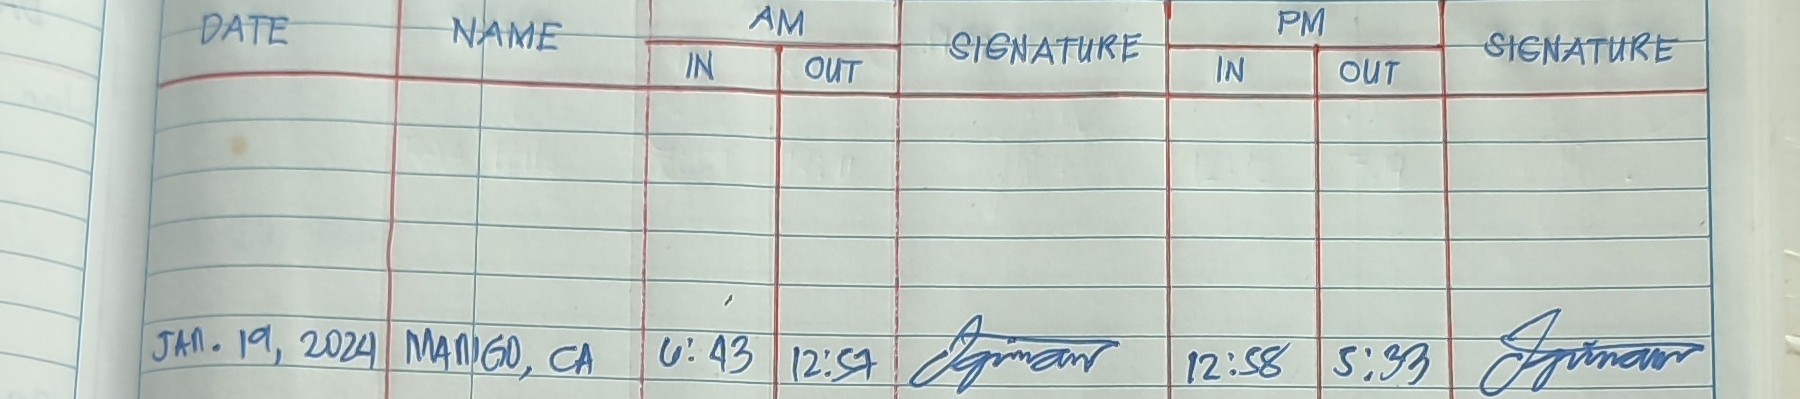 DATE NAME AM SIGNATURE PM SIGNATURE
IN OUT IN OUT
JAN. 19, 2024 MANIGO, CA 6:43 12:57 12:58 5:33